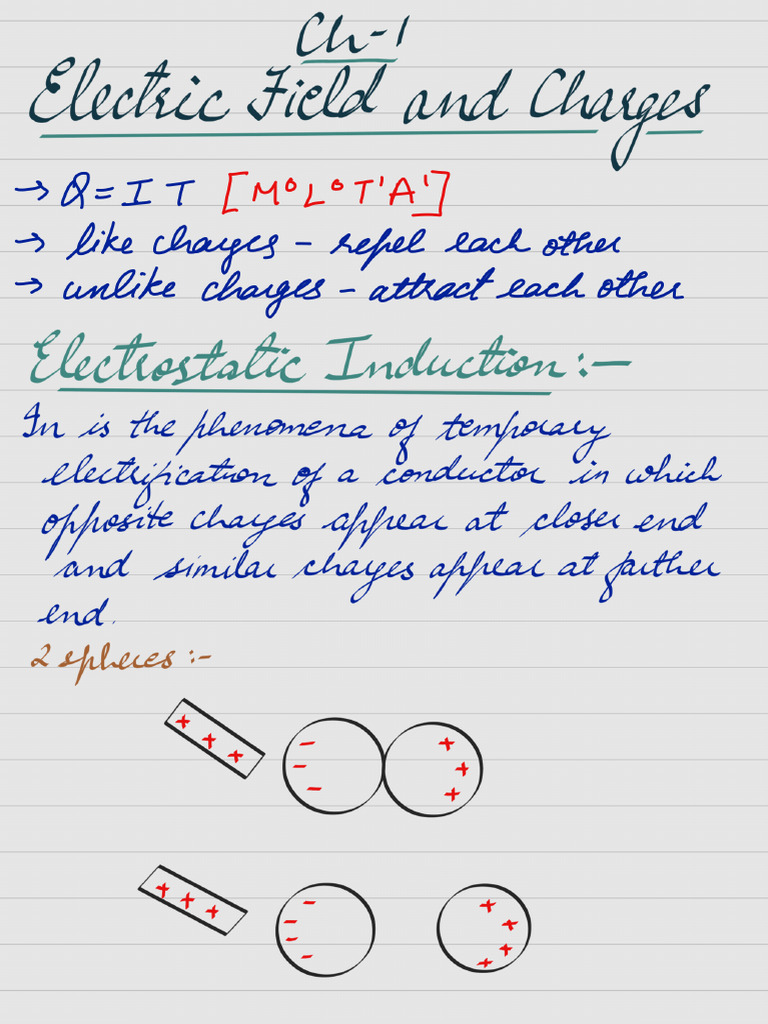 Ch-1
Electric Field and Charges
→ Q = I T [M⁰L⁰T¹A¹]
→ like charges - repel each other
→ unlike charges - attract each other
Electrostatic Induction:-
In is the phenomena of temporary
electrification of a conductor in which
opposite charges appear at closer end
and similar charges appear at farther
end.
2 spheres :-
+ + +
- - -
+ + +
+ + +
- - - -
+ + + +